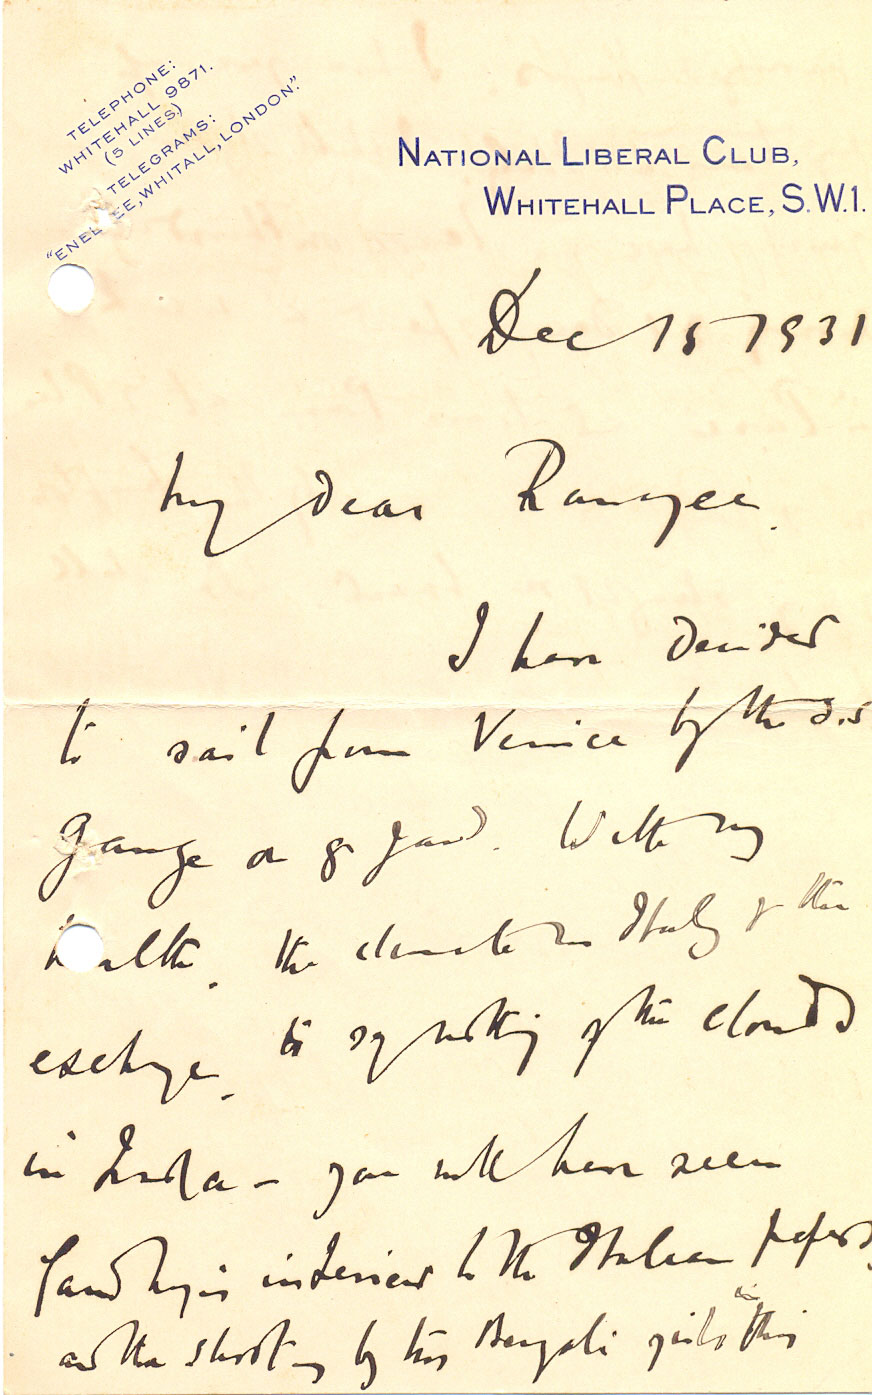 TELEPHONE:
WHITEHALL 9871.
(5 LINES)
TELEGRAMS:
"ENEL EE, WHITALL, LONDON."
NATIONAL LIBERAL CLUB,
WHITEHALL PLACE, S.W.1.
Dec 15 1931
My dear
I have decided
to sail from Venice by the S.S
Gange on 8 Jan. With my
health, the climate in Italy & the
exchange, to say nothing of the clouds
in India - you will have seen
Gandhiji's interview to the Italian papers,
and the shooting by two Bengali girls in this